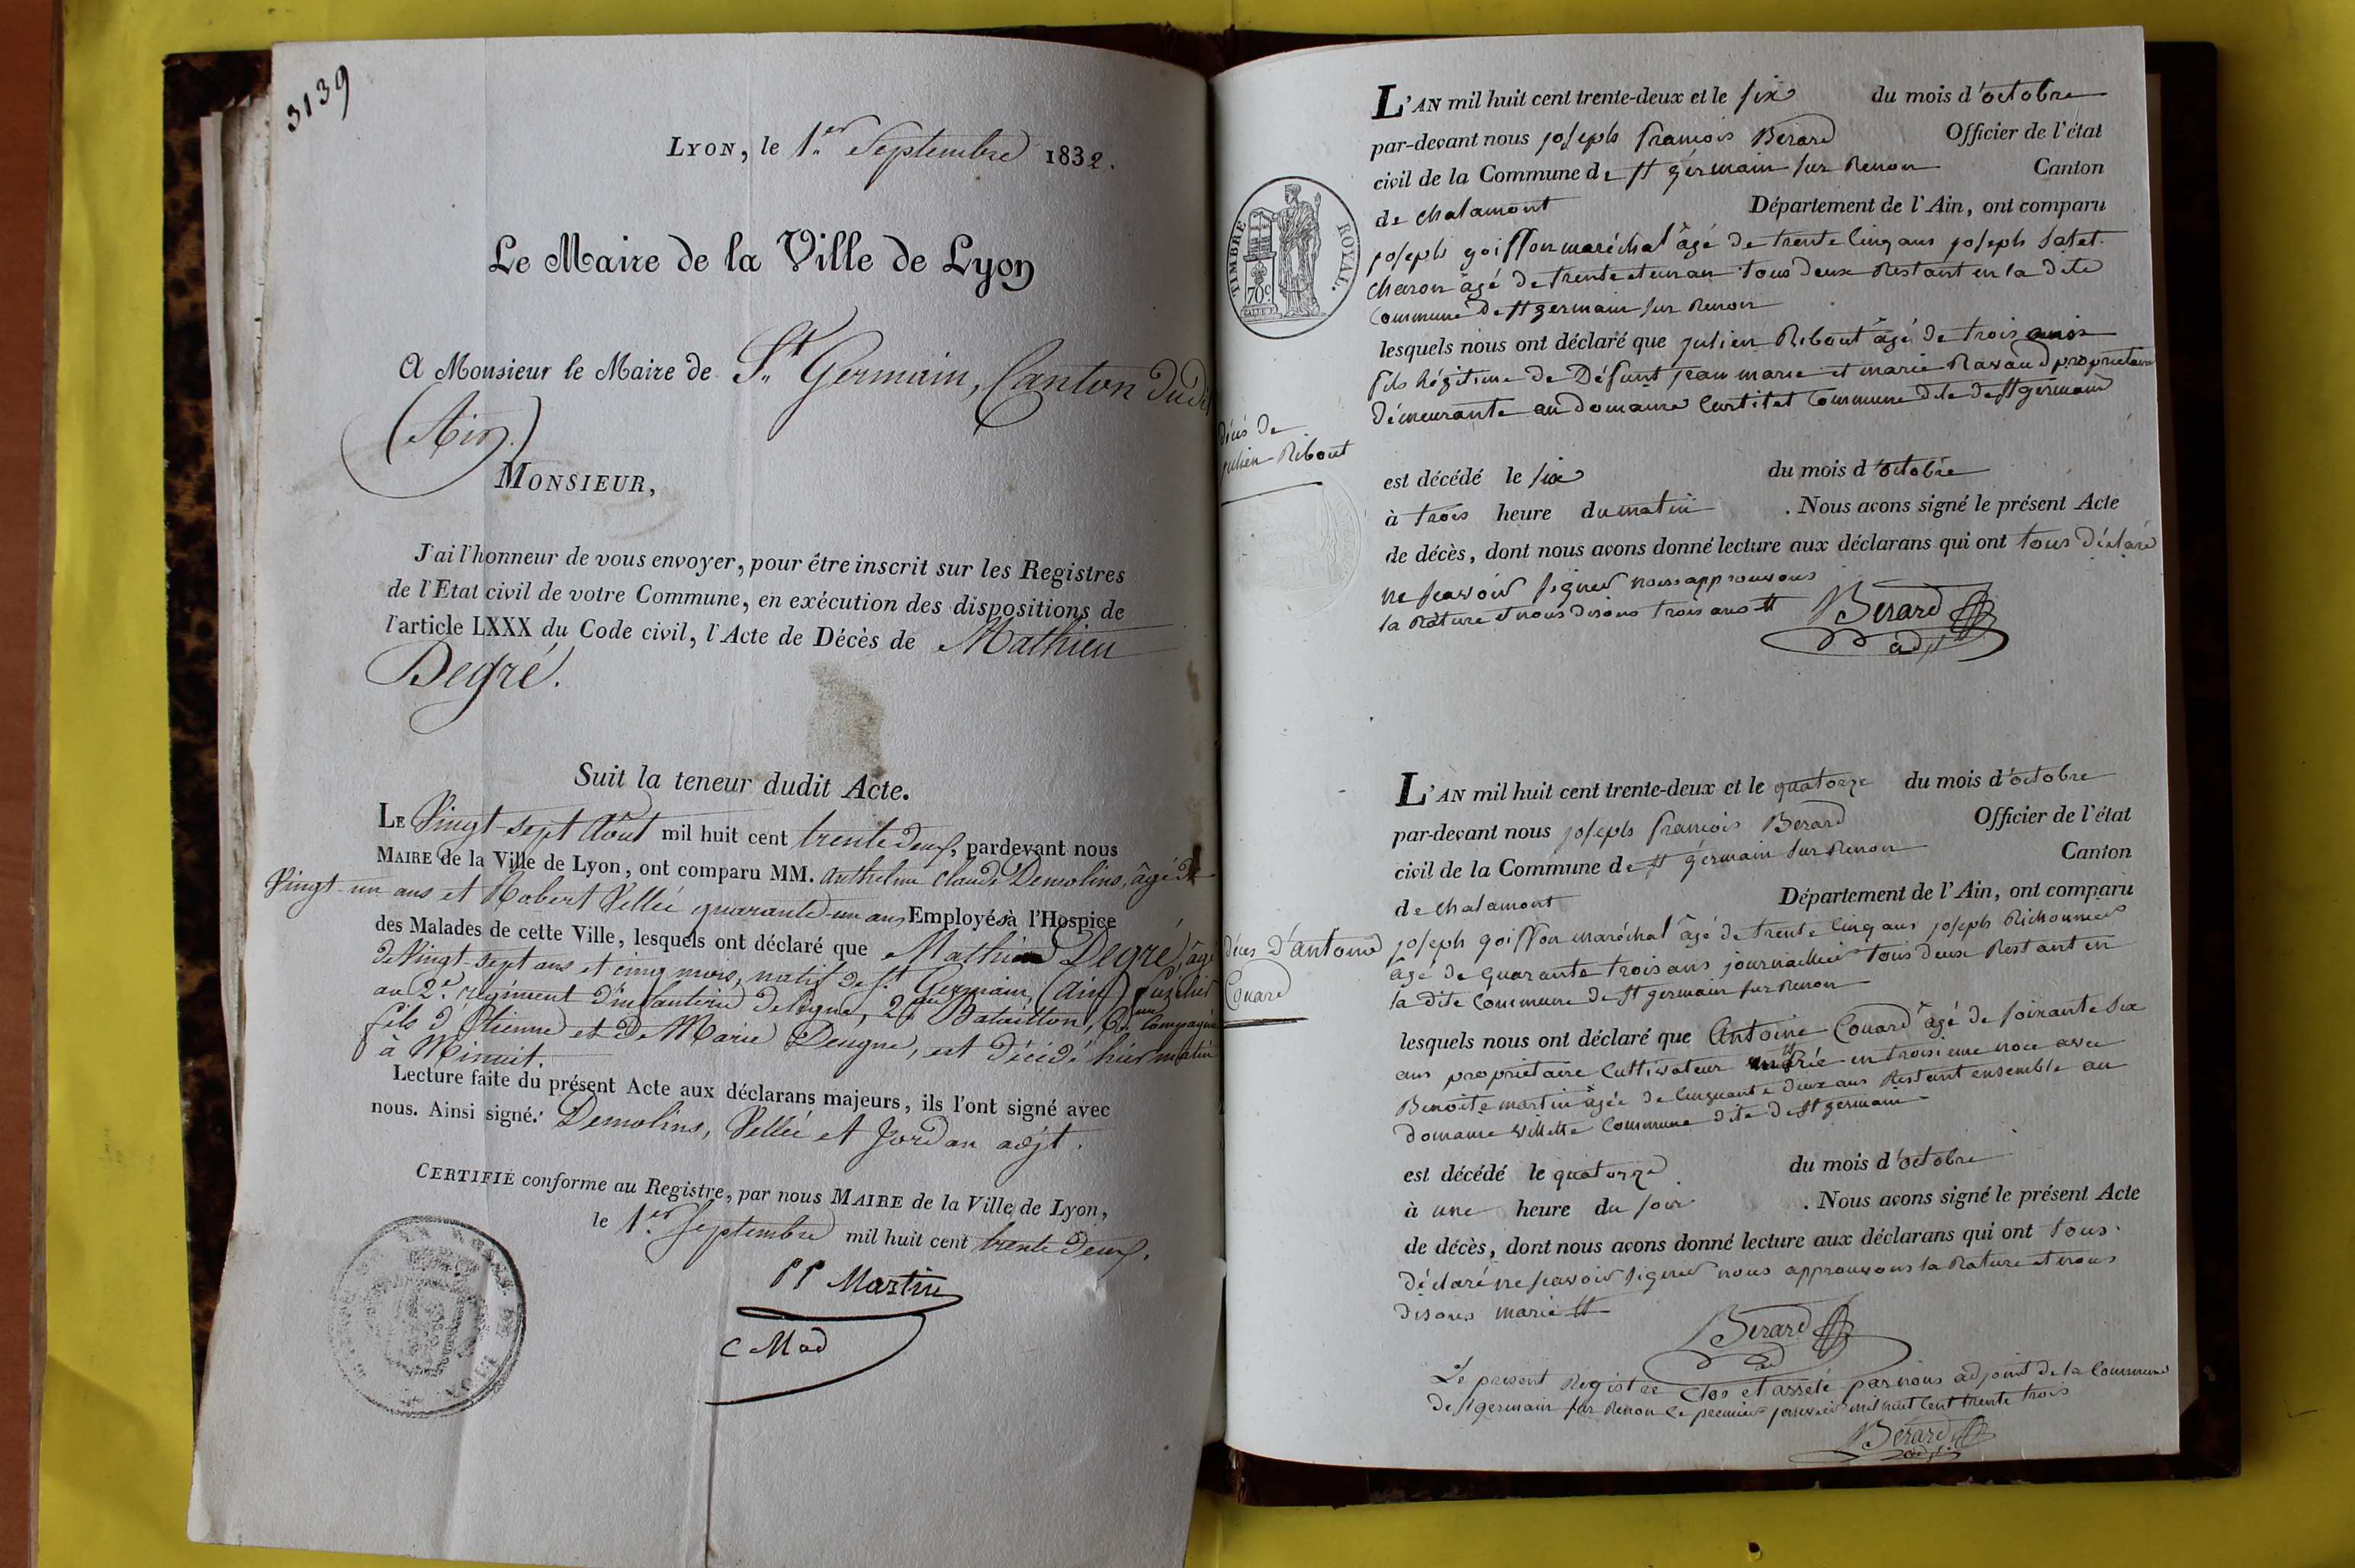 3139
LYON, le 1.er Septembre 1832.
Le Maire de la Ville de Lyon
A Monsieur le Maire de St Germain, Canton dudit
(Ain.)
MONSIEUR,
J'ai l'honneur de vous envoyer, pour être inscrit sur les Registres
de l'Etat civil de votre Commune, en exécution des dispositions de
l'article LXXX du Code civil, l'Acte de Décès de Mathieu
Degré.
Suit la teneur dudit Acte.
LE Vingt-sept Août mil huit cent trente deux, pardevant nous
MAIRE de la Ville de Lyon, ont comparu MM. Anthelme Claude Demolins, âgé de
Vingt-un ans et Robert Vellée quarante-un ans, Employés à l'Hospice
des Malades de cette Ville, lesquels ont déclaré que Mathieu Degré, âgé
de Vingt-sept ans et cinq mois, natif de St Germain, (Ain) fusilier
au 2.e régiment d'infanterie de ligne, 2.me Bataillon, 6.me Compagnie
fils d'Etienne et de Marie Deugne, est décédé hier matin
à Minuit.
Lecture faite du présent Acte aux déclarans majeurs, ils l'ont signé avec
nous. Ainsi signé: Demolins, Vellée et Jordan adjt.
CERTIFIÉ conforme au Registre, par nous MAIRE de la Ville de Lyon,
le 1.er Septembre mil huit cent trente deux.
Martin
TIMBRE ROYAL.
70c
L'AN mil huit cent trente-deux et le six du mois d'octobre
par-devant nous joseph françois Berard Officier de l'état
civil de la Commune de st germain sur Renon Canton
de chalamont Département de l'Ain, ont comparu
joseph goiffon maréchal âgé de trente cinq ans joseph Satet
charon âgé de trente et un an tous deux Restant en la dite
Commune de st germain sur Renon
lesquels nous ont déclaré que julien Ribout âgé de trois
fils légitime de Défunt jean marie et marie Ravaud proprietaire
démeurante au domaine Curtitet Commune dite de st germain
décès de
julien Ribout
est décédé le six du mois d'octobre
à trois heure du matin . Nous avons signé le présent Acte
de décès, dont nous avons donné lecture aux déclarans qui ont tous déclaré
ne scavoir signer nous approuvons
la Rature et nous disons trois ans
Berard
adj
L'AN mil huit cent trente-deux et le quatorze du mois d'octobre
par-devant nous joseph françois Berard Officier de l'état
civil de la Commune de st germain sur Renon Canton
de chalamont Département de l'Ain, ont comparu
décès d'antoine
Couard
joseph goiffon maréchal âgé de trente cinq ans joseph Richonnier
âgé de quarante trois ans journallier tous deux Restant en
la dite Commune de st germain sur Renon
lesquels nous ont déclaré que Antoine Couard âgé de soixante six
ans propriétaire Cultivateur en troisieme noce avec
Benoite martin âgée de Cinquante deux ans Restant ensemble au
domaine villette Commune dite de st germain
est décédé le quatorze du mois d'octobre
à une heure du soir . Nous avons signé le présent Acte
de décès, dont nous avons donné lecture aux déclarans qui ont tous
déclaré ne scavoir signer nous approuvons la Rature et nous
disons marié
Berard
Le present Registre Clos et arreté par nous adjoint de la Commune
de st germain sur Renon le premier janvier mil huit Cent trente trois
Berard
adj